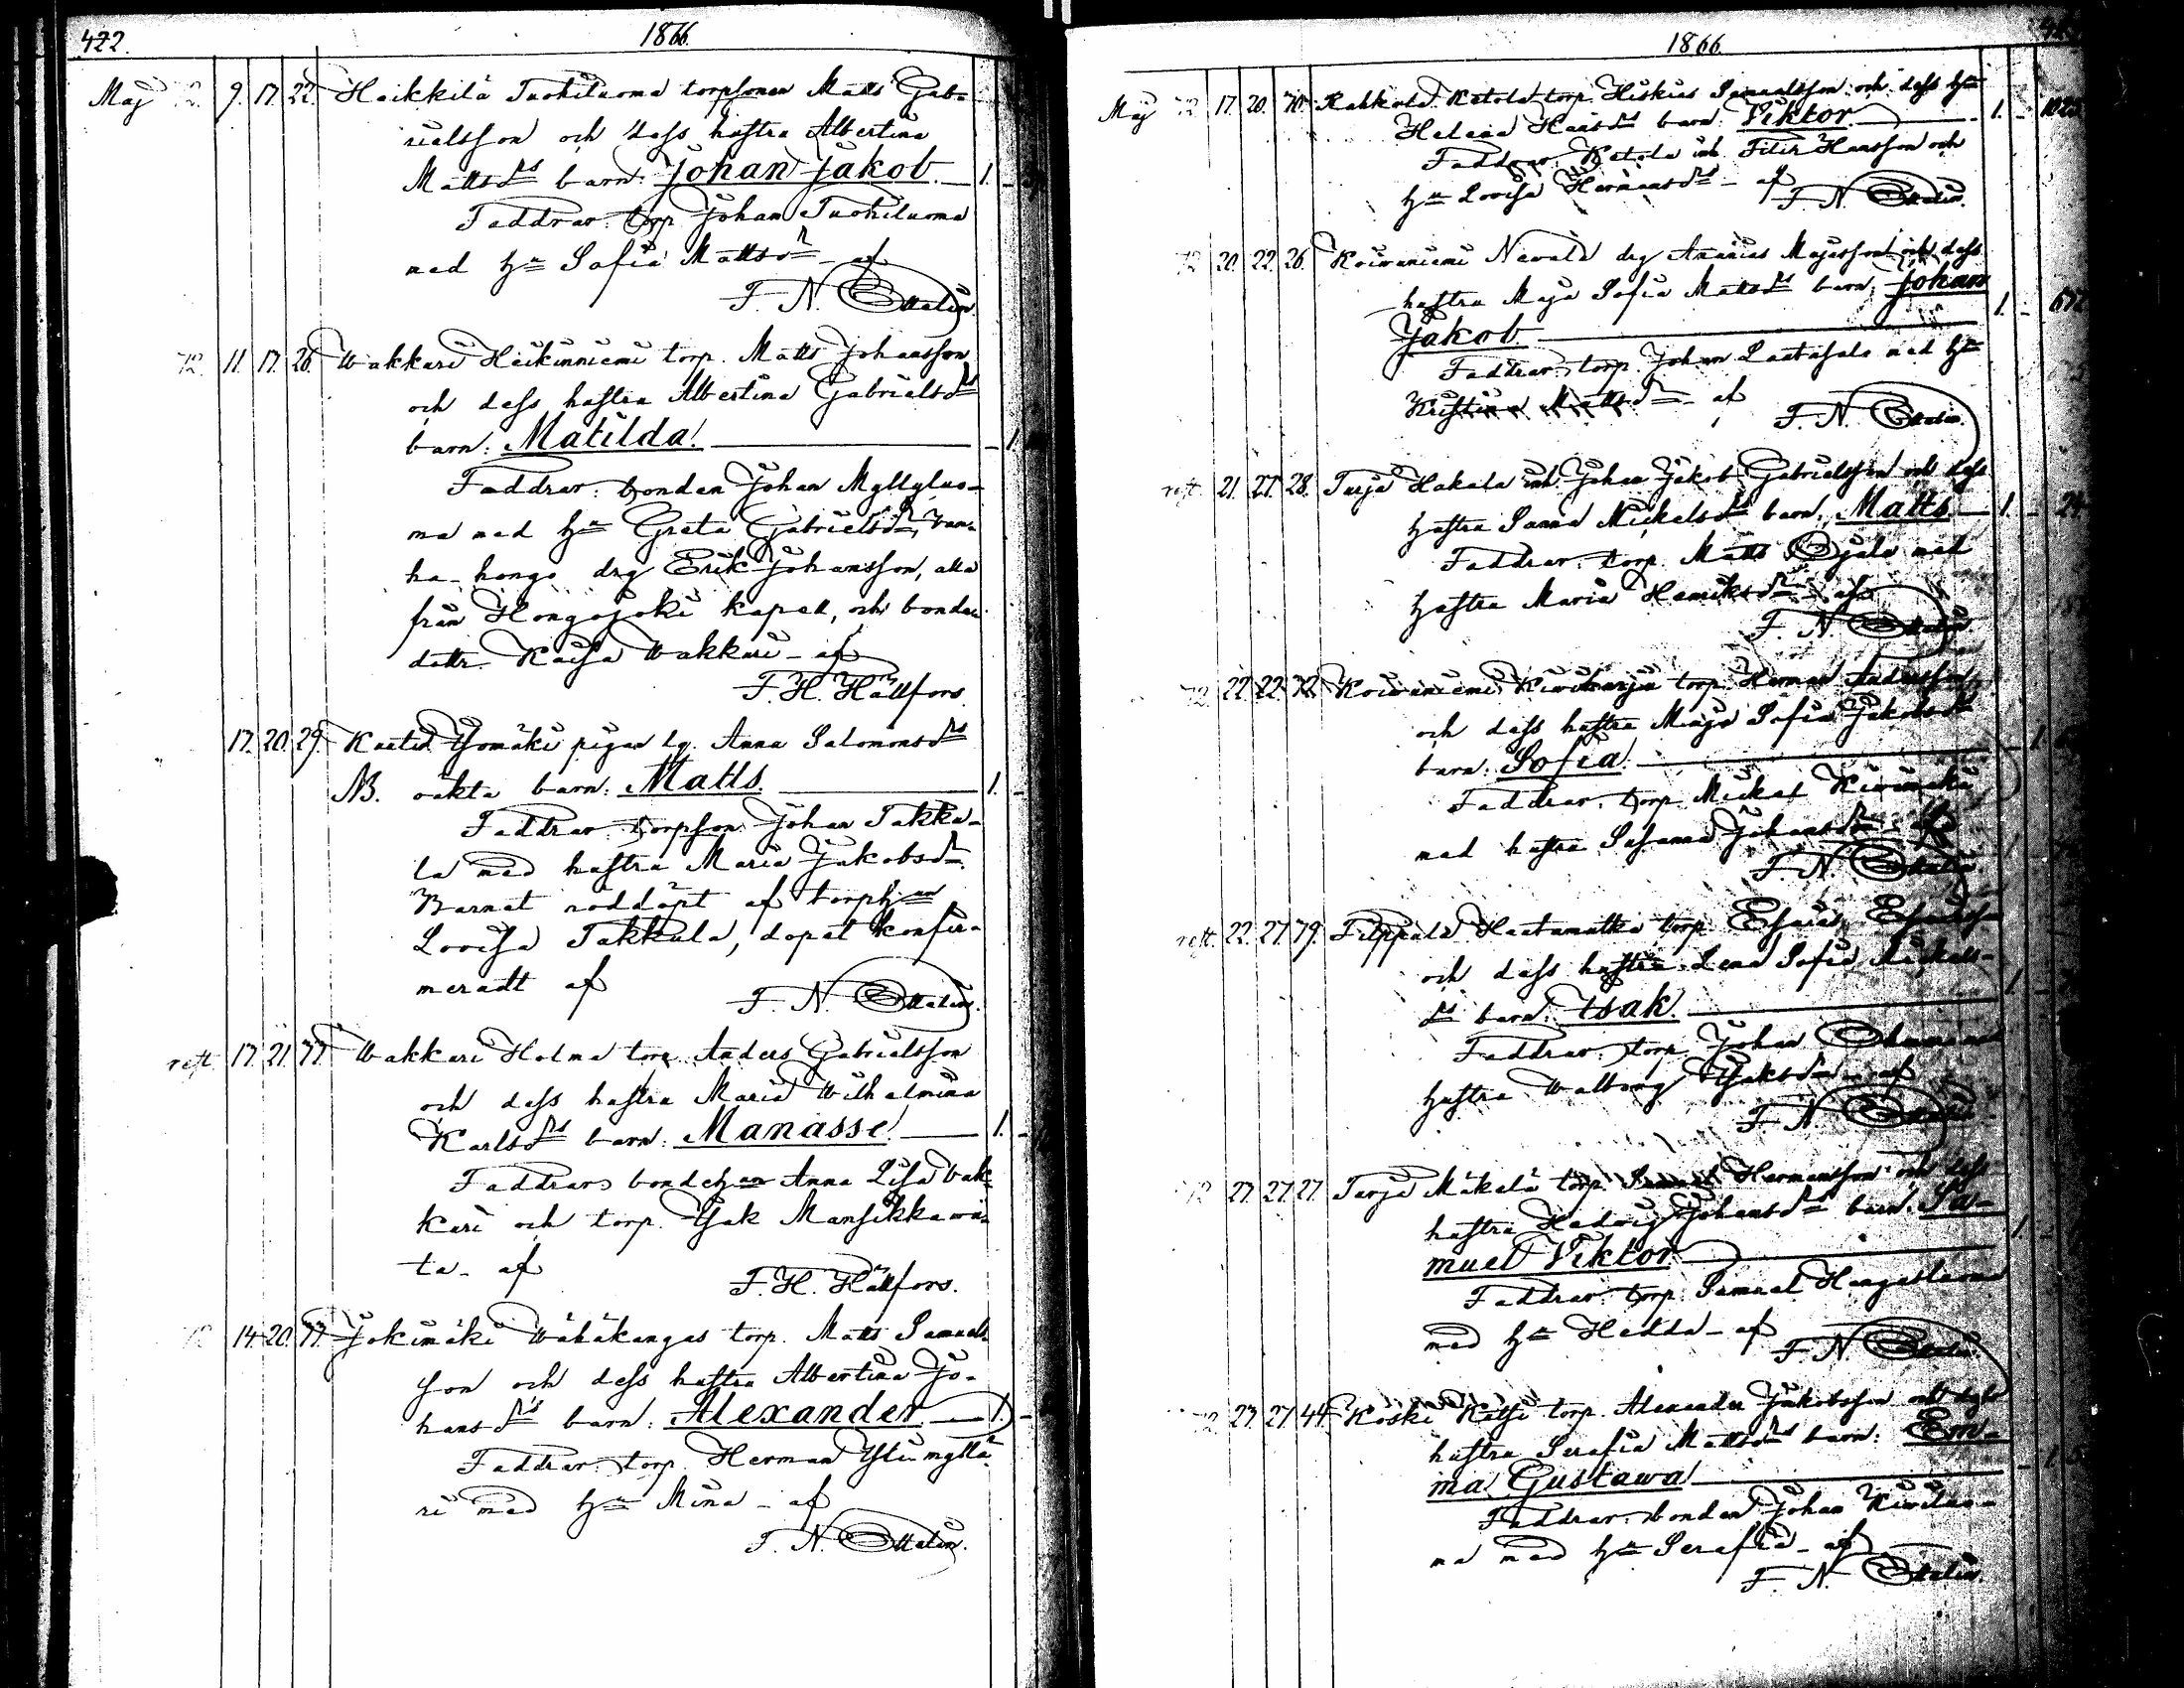 422.
1866.
Maj 72. 9. 17. 22. Heikkilä Tuohiluoma torpsonen Matts Gab-
rielsson och dess hustru Albertina
Mattsdrs barn: Johan Jakob. 1.
Faddrar: torp. Johan Tuohiluoma
med hn Sofia Mattsdr - af
F. N. Ottelin.
72. 11. 17. 26. Wakkuri Heikinniemi torp. Matts Johansson
och dess hustru Albertina Gabrielsdrs
barn: Matilda. 1.
Faddrar: bonden Johan Myllyluo-
ma med hn Greta Gabrielsdr, Van-
ha-hongo drg Erik Johansson, alla
från Hongojoki kapell, och bonde
dottr. Kaisa Wakkuri - af
F. H. Hällfors.
17. 20. 29. Yomäki pigan lg. Anna Salomonsdrs
NB. oäkta barn: Matts. 1.
Faddrar: torpson Johan Takku-
la med hustru Maria Jakobsdr.
Barnet nöddöpt af torphun
Lovisa Takkula, dopet konfir-
meradt af
F. N. Ottelin.
reft. 17. 21. 77. Wakkuri Holma torp. Anders Gabrielsson
och dess hustru Maria Wilhelmina
Karlsdrs barn: Manasse. 1.
Faddrar: bondehun Anna Lisa Wak-
kuri och torp. Isak Mansikkawii-
ta - af
F. H. Hällfors.
72 14. 20. 77. Jokimäki Wähäkangas torp. Matts Samuels-
son och dess hustru Albertina Jo-
hansdrs barn: Alexander 1.
Faddrar: torp. Herman Ylimyllä-
ri med hn Mina - af
F. N. Ottelin.
1866.
Maj 72 17. 20. 70. Kakkola Ketola torp. Hiskias Samuelsson och dess hn
Helena Hansdrs barn: Viktor. 1.
Faddrar: Ketola inh. Hansson och
hn Lovisa Hermansdr - af
F. N. Ottelin.
72 20. 22. 26. Koiwuniemi Newala drg Ananias Majasson och dess
hustru Maja Sofia Mattsdrs barn: Johan
Jakob. 1.
Faddrar: torp. Johan Laatasalo med hn
Kristina Mattsdr - af
F. N. Ottelin.
reft. 21. 27. 28. Turja Hakala inh. Johan Jakob Gabrielsson och dess
hustru Sanna Mickelsdrs barn: Matts. 1.
Faddrar: torp. Matts Ojala med
hustru Maria Henriksdr - af
F. N. Ottelin.
72. 22. 22. 72. Koiwuniemi Kiwiharju torp. Herman Andersson
och dess hustru Maja Sofia Jakobsdrs
barn: Sofia. 1.
Faddrar: torp. Mickel Kiwimäki
med hustru Susanna Johansdr - af
F. N. Ottelin.
reft. 22. 27. 79. Filppula Haatamutka torp. Esaias Esaiasson
och dess hustru Lena Sofia Mickels-
drs barn: Isak. 1.
Faddrar: torp. Johan med
hustru Walborg Isaksdr - af
F. N. Ottelin.
72 27. 27. 27. Turja Mäkelä torp. Samuel Hermansson och dess
hustru Hedwig Johansdrs barn: Sa-
muel Viktor. 1.
Faddrar: torp. Samuel Hangasluoma
med hn Hedda - af
F. N. Ottelin.
72. 27. 27. 44. Koski torp. Alexander Jakobsson och dess
hustru Serafia Mattsdrs barn: Em-
ma Gustawa 1.
Faddrar: bonden Johan Kiwiluo-
ma med hn Serafia - af
F. N. Ottelin.